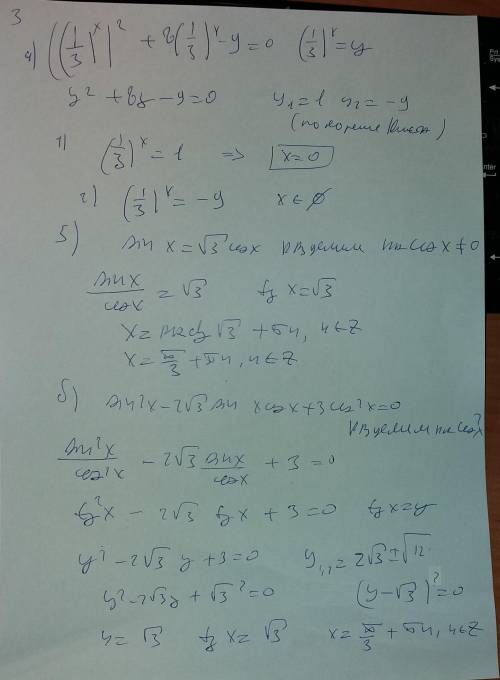 3
4) ((1/3)^x)^2 + 8(1/3)^x - 9 = 0 (1/3)^x = y
y^2 + 8y - 9 = 0 y1 = 1 y2 = -9
(по
1) (1/3)^x = 1 => x = 0
2) (1/3)^x = -9 x ∈ ∅
5) sin x = √3 cos x разделим на cos x ≠ 0
sin x / cos x = √3 tg x = √3
x = arctg √3 + πn, n ∈ Z
x = π/3 + πn, n ∈ Z
б) sin^2 x - 2√3 sin x cos x + 3 cos^2 x = 0
разделим на cos^2 x
sin^2 x / cos^2 x - 2√3 sin x / cos x + 3 = 0
tg^2 x - 2√3 tg x + 3 = 0 tg x = y
y^2 - 2√3 y + 3 = 0 y1,2 = 2√3 ± √12
y^2 - 2√3 y + √3^2 = 0 (y - √3)^2 = 0
y = √3 tg x = √3 x = π/3 + πn, n ∈ Z